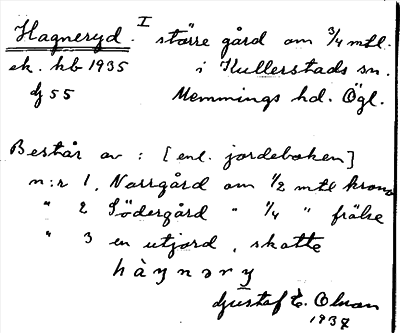 Hagneryd. I större gård om 3/4 mtl.
ek. kb 1935 i Kullerstads sn.
dj 55 Memmings hd. Ögl.
Består av : [enl. jordeboken]
n:r 1, Norrgård om 1/2 mtl krono
" 2 Södergård " 1/4 " frälse
" 3 en utjord, skatte
hàynəry
Gustaf E. Olson
1937